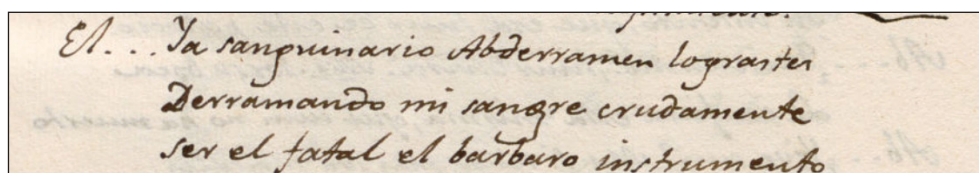 El... Ya sanguinario Abderramen lograstes
Derramando mi sangre crudamente
ser el fatal el barbaro instrumento